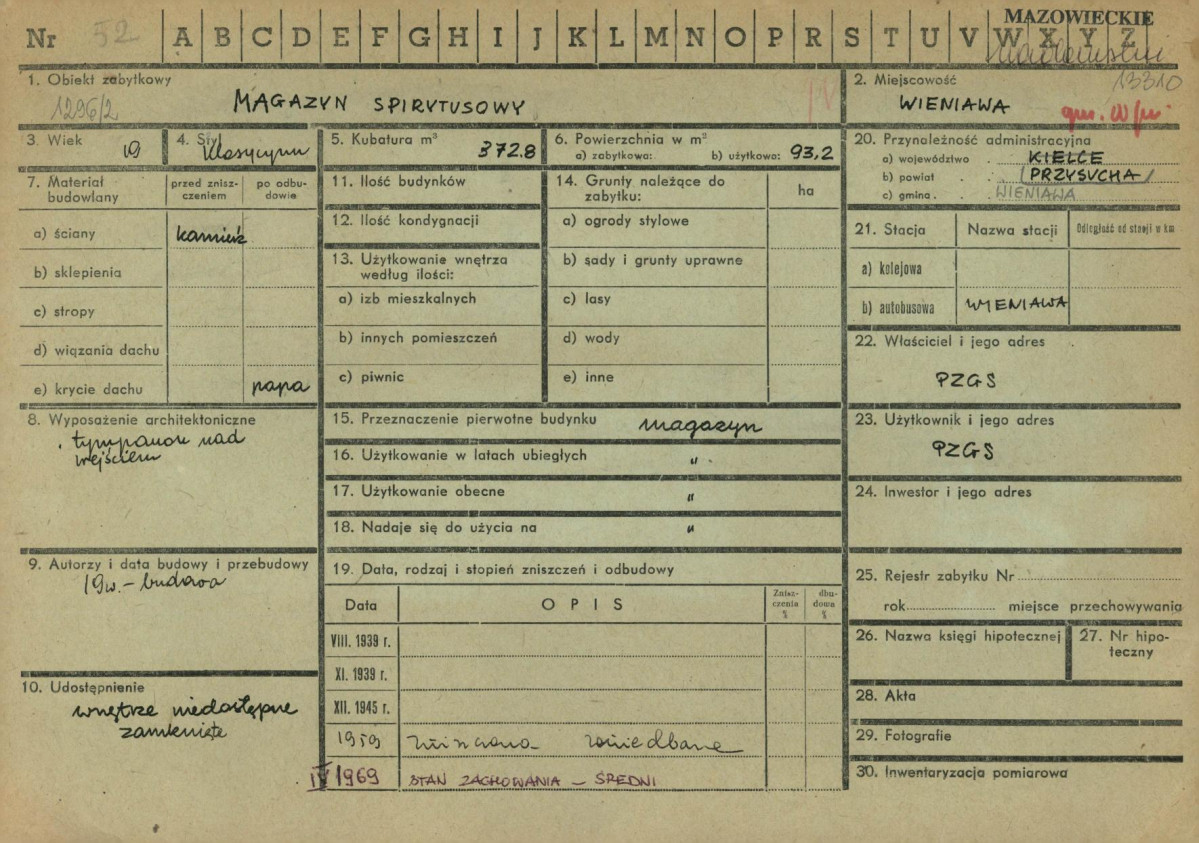 MAZOWIECKIE
Nr 52 A B C D E F G H I J K L M N O P R S T U V W X Y Z
13310
1. Obiekt zabytkowy
1296/2 MAGAZYN SPIRYTUSOWY
2. Miejscowość
WIENIAWA
3. Wiek 19
4. Styl klasycyzm
5. Kubatura m³ 372.8
6. Powierzchnia w m²
a) zabytkowa: b) użytkowa: 93,2
20. Przynależność administracyjna
a) województwo . KIELCE
b) powiat . . PRZYSUCHA
c) gmina . . WIENIAWA
7. Materiał budowlany
przed zniszczeniem
po odbudowie
a) ściany kamień
b) sklepienia
c) stropy
d) wiązania dachu
e) krycie dachu papa
11. Ilość budynków
12. Ilość kondygnacji
13. Użytkowanie wnętrza
według ilości:
a) izb mieszkalnych
b) innych pomieszczeń
c) piwnic
14. Grunty należące do
zabytku:
ha
a) ogrody stylowe
b) sady i grunty uprawne
c) lasy
d) wody
e) inne
21. Stacja Nazwa stacji Odległość od stacji w km
a) kolejowa
b) autobusowa WIENIAWA
22. Właściciel i jego adres
PZGS
8. Wyposażenie architektoniczne
tympanon nad
wejściem
15. Przeznaczenie pierwotne budynku magazyn
16. Użytkowanie w latach ubiegłych "
17. Użytkowanie obecne "
18. Nadaje się do użycia na "
23. Użytkownik i jego adres
PZGS
24. Inwestor i jego adres
9. Autorzy i data budowy i przebudowy
19w. – budowa
19. Data, rodzaj i stopień zniszczeń i odbudowy
Data OPIS Zniszczenia % dbudowa %
VIII. 1939 r.
XI. 1939 r.
XII. 1945 r.
1959 zaniedbane
IV 1969 STAN ZACHOWANIA – ŚREDNI
25. Rejestr zabytku Nr
rok miejsce przechowywania
26. Nazwa księgi hipotecznej
27. Nr hipoteczny
10. Udostępnienie
wnętrze niedostępne
zamknięte
28. Akta
29. Fotografie
30. Inwentaryzacja pomiarowa